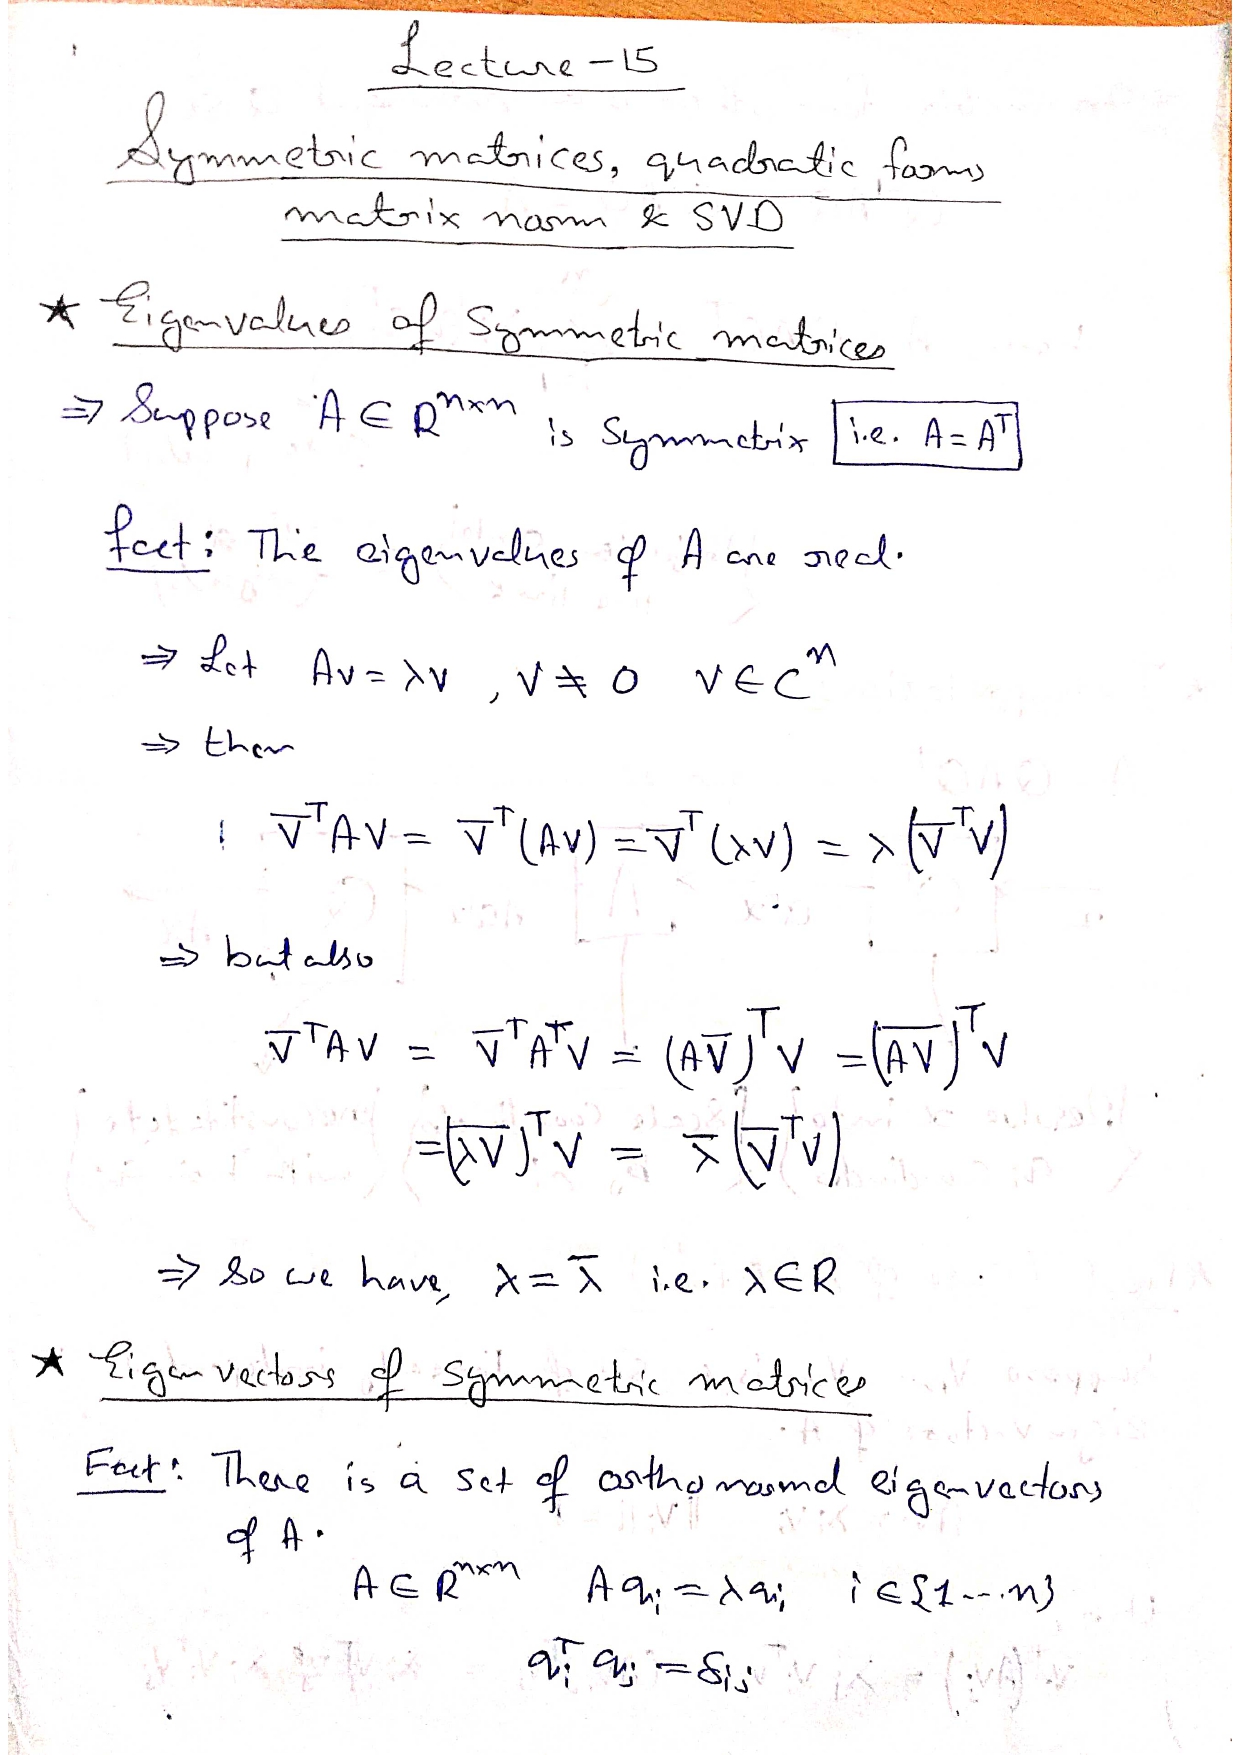 Lecture - 15
Symmetric matrices, quadratic forms
matrix norm & SVD
★ Eigenvalues of Symmetric matrices
⇒ Suppose A ∈ R^{n×n} is Symmetrix i.e. A = A^T
fact: The eigenvalues of A are real.
⇒ Let Av = λv , v ≠ 0 v ∈ C^n
⇒ then
v̅^T A v = v̅^T (Av) = v̅^T (λv) = λ (v̅^T v)
⇒ but also
v̅^T A v = v̅^T A^T v = (A v̅)^T v = (\overline{Av})^T v
= (\overline{λv})^T v = λ̅ (v̅^T v)
⇒ So we have, λ = λ̅ i.e. λ ∈ R
★ Eigen vectors of symmetric matrices
Fact: There is a set of orthonormal eigenvectors
of A.
A ∈ R^{n×n} A q_i = λ q_i, i ∈ {1 --- n}
q_i^T q_j = δ_{ij}